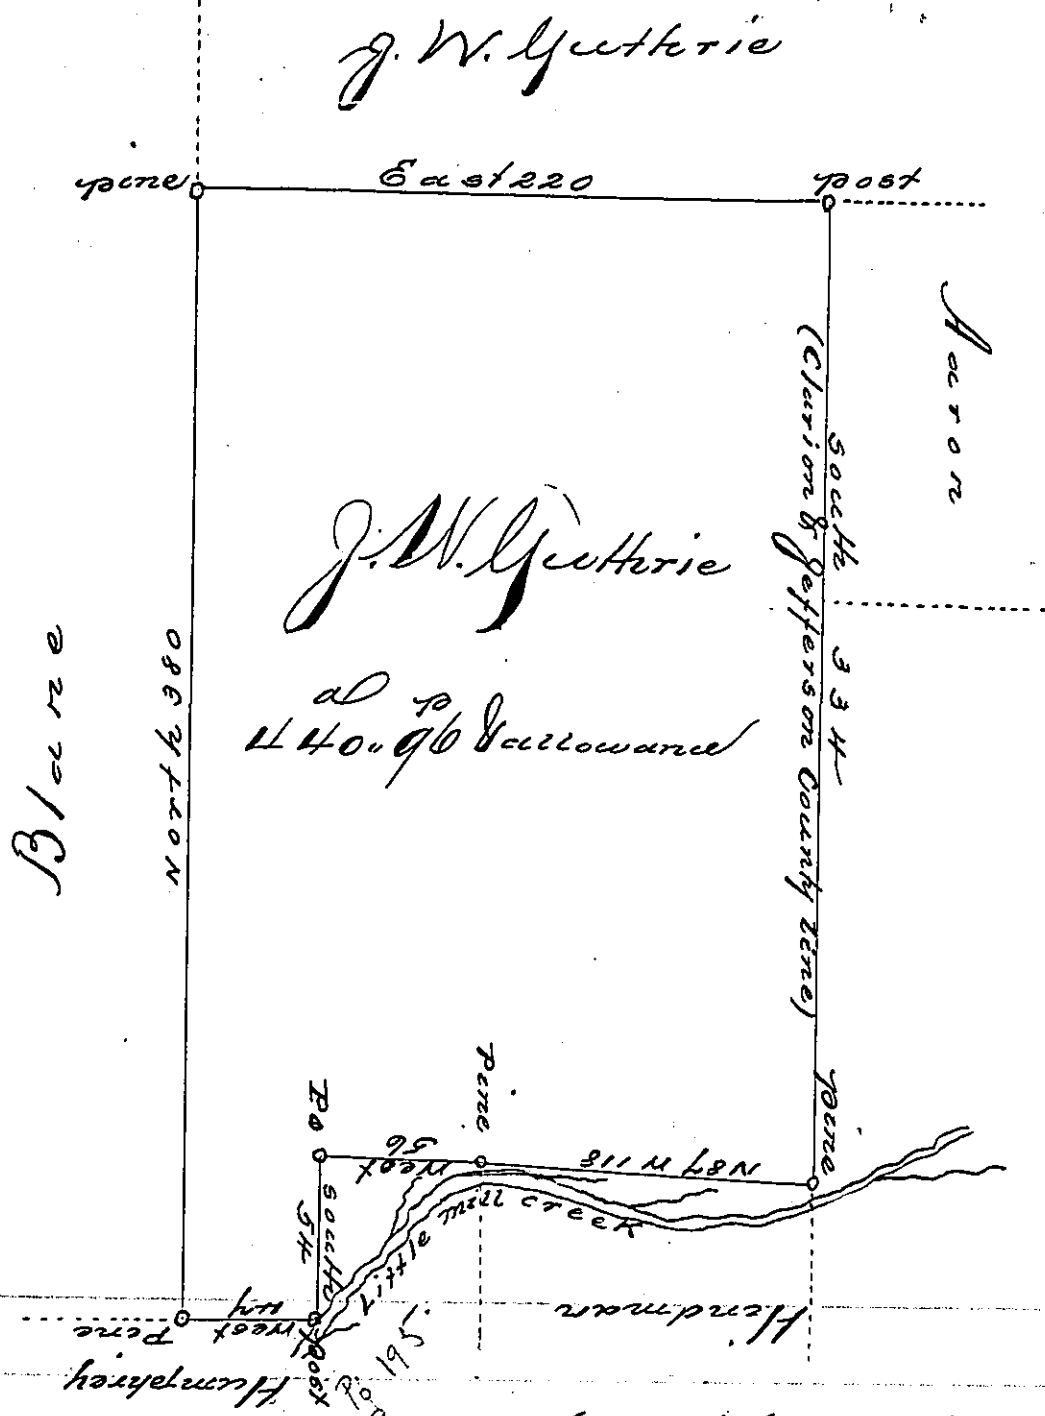 J. W. Guthrie
pine
East 220
post
Aaron
South 334
(Clarion & Jefferson County Line)
J. W. Guthrie
a p
440 .. 96 & allowance
Blane
North 380
Po
Pine
pine
West 56
N87W 118
South 54
Little Mill Creek
West 47
Pine
Post
Hindman
Humphrey
Pg 195